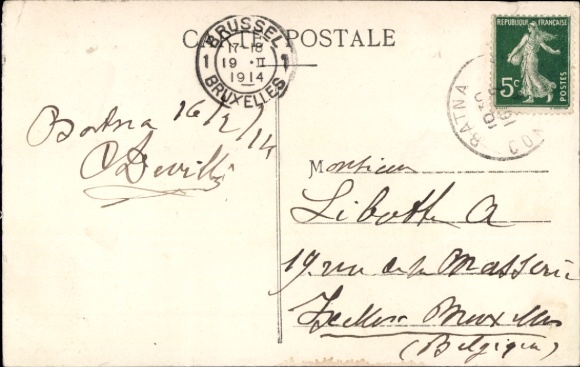 CARTE POSTALE
BRUSSEL
1 17-18 1
19 II
1914
BRUXELLES
RÉPUBLIQUE FRANÇAISE
5c
POSTES
BATNA
16
CON
Batna 16/2/14
Deville
Monsieur
Libotte A
19 rue de la Brasserie
Ixelles Bruxelles
(Belgique)